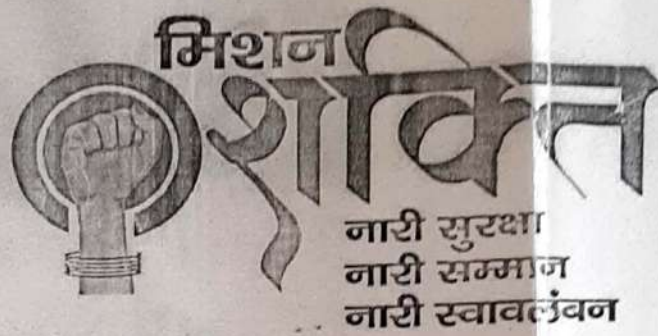 मिशन
शक्ति
नारी सुरक्षा
नारी सम्मान
नारी स्वावलंवन